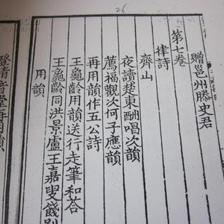 26
贈邕州滕史君
第七卷
律詩
齊山
夜讀楚東酬唱次韻
薦福觀次何子應韻
再用韻作五公詩
王龜齡用韻送行走筆和荅
王龜齡同洪景盧王嘉叟餞別
用韻
清音堂再用韻